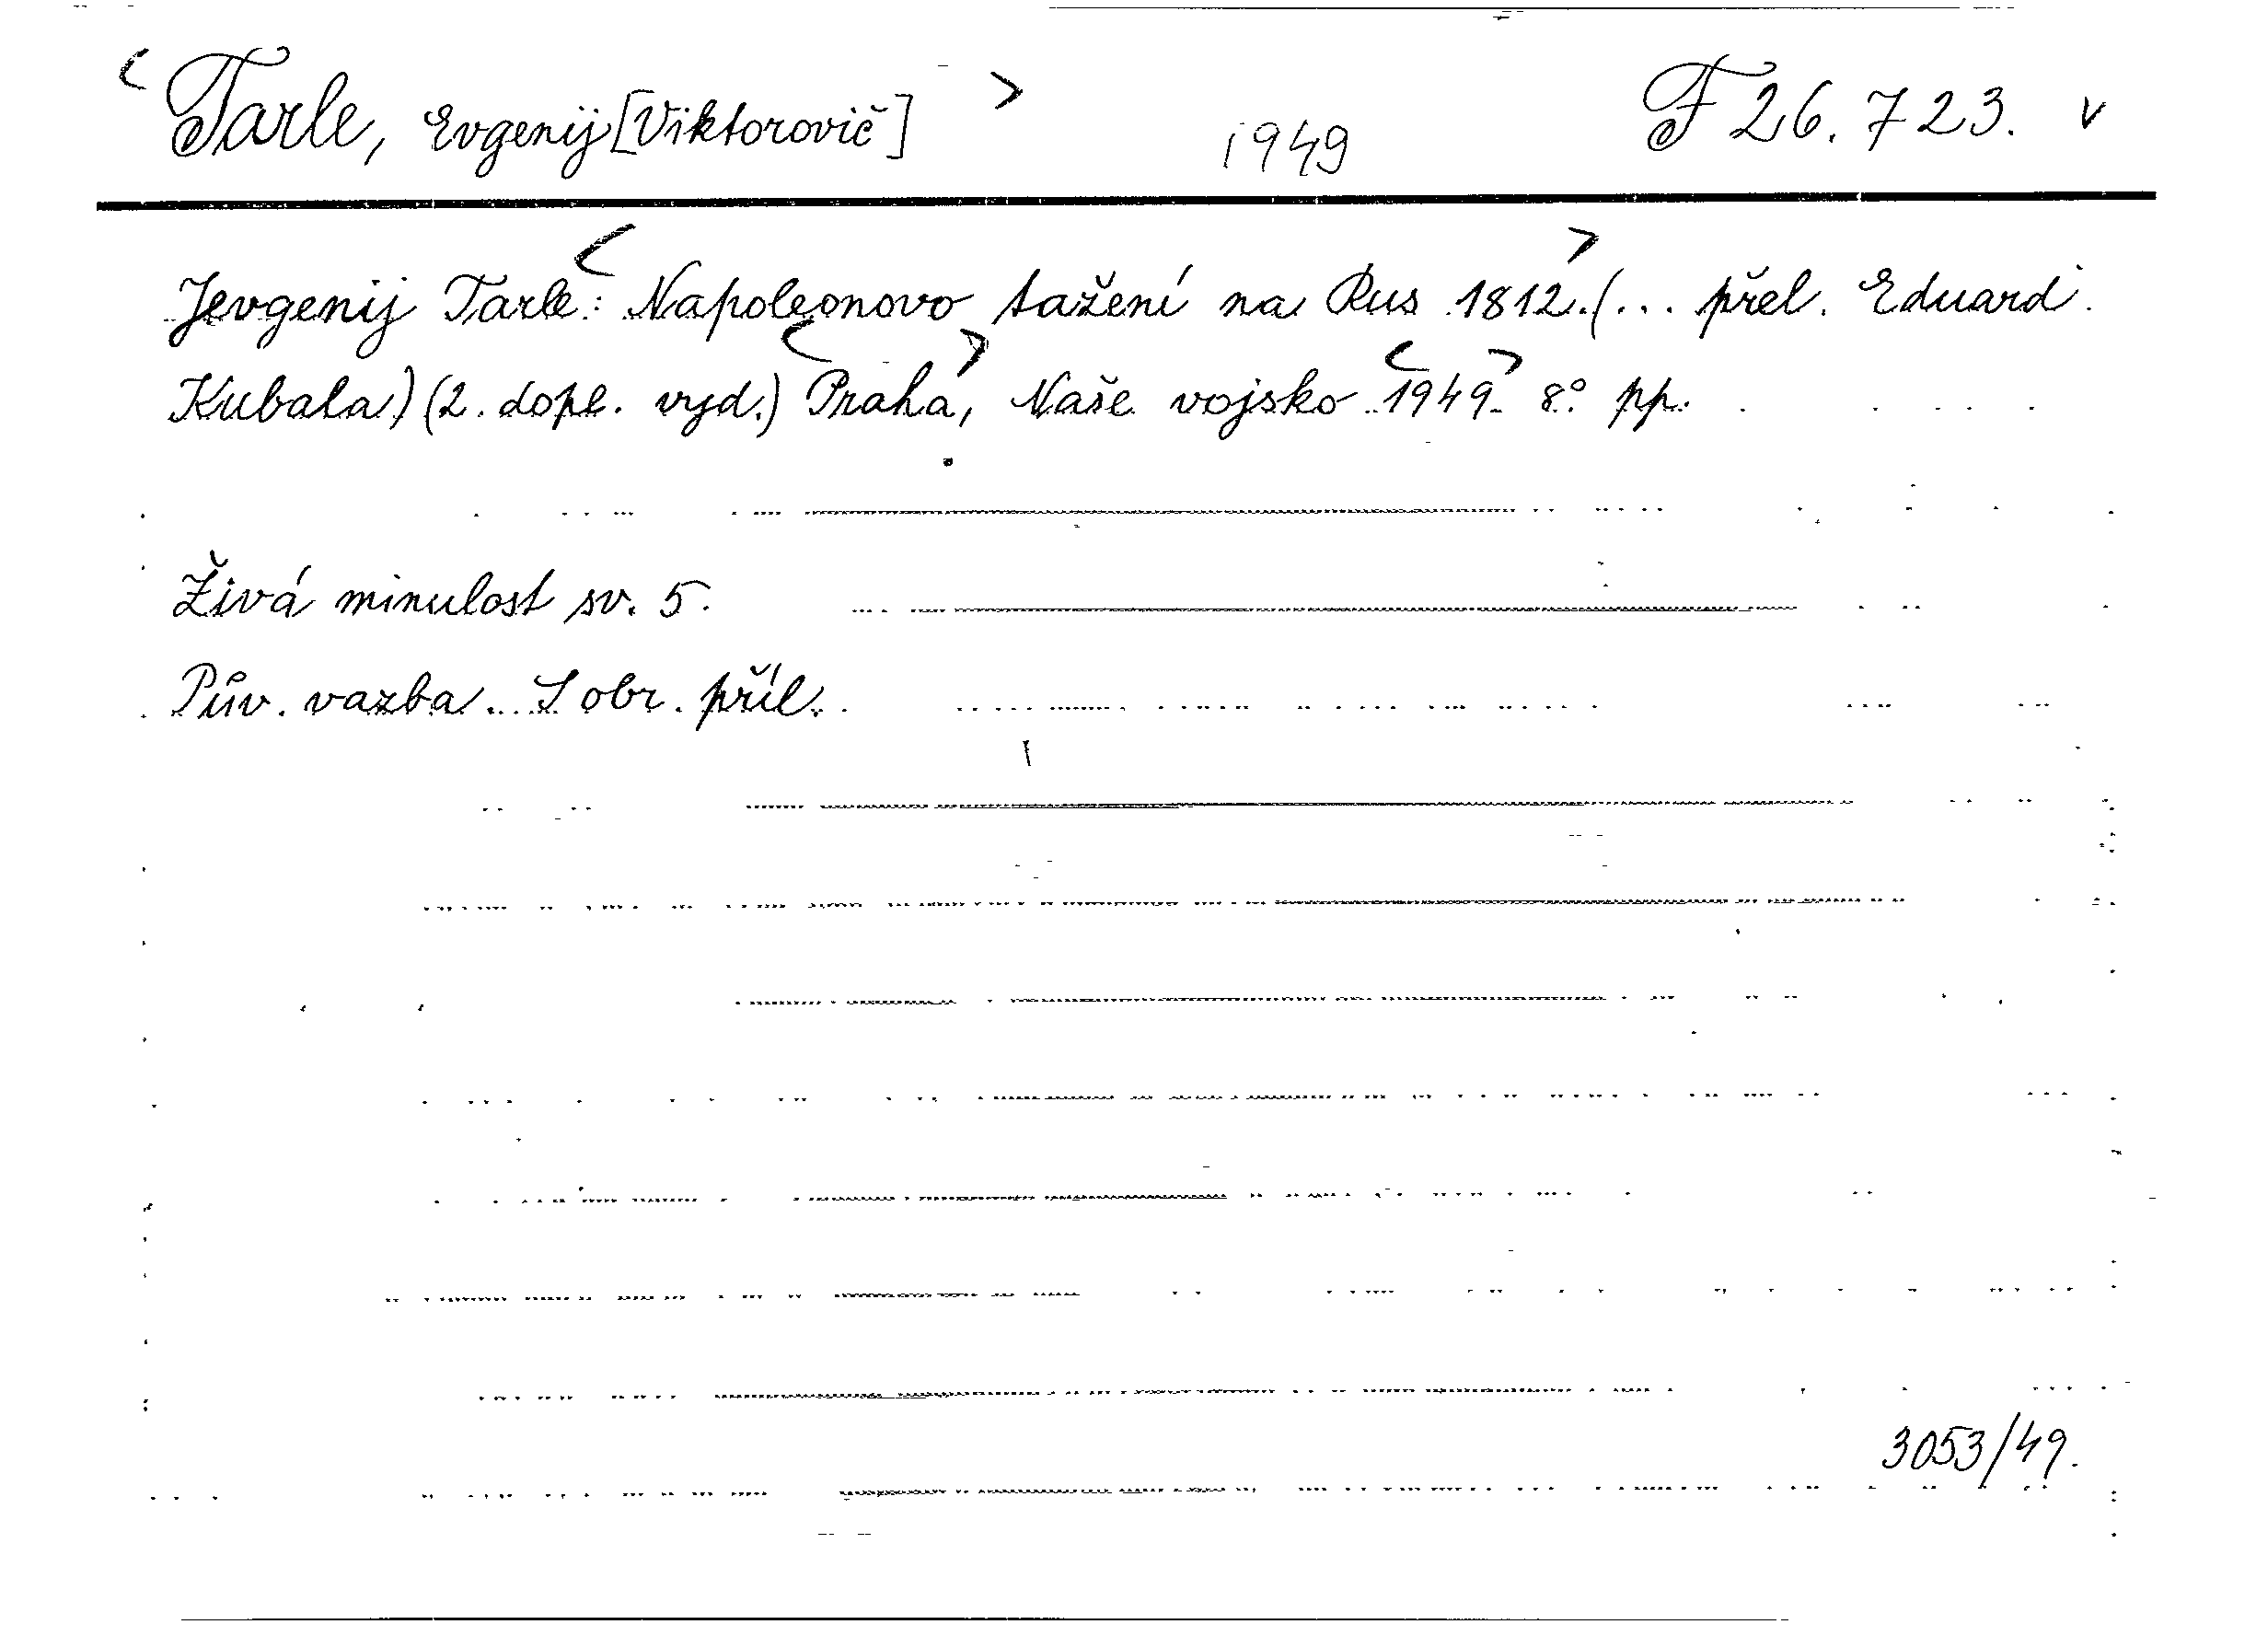 <Tarle, Evgenij [Viktorovič]> 1949 F 26.723. v
Jevgenij Tarle: <Napoleonovo tažení na Rus 1812>. (... přel. Eduard
Kubala) (2. dopl. vyd.) <Praha>, Naše vojsko <1949> 8° pp.
Živá minulost sv. 5.
Pův. vazba. S obr. příl.
3053/49.